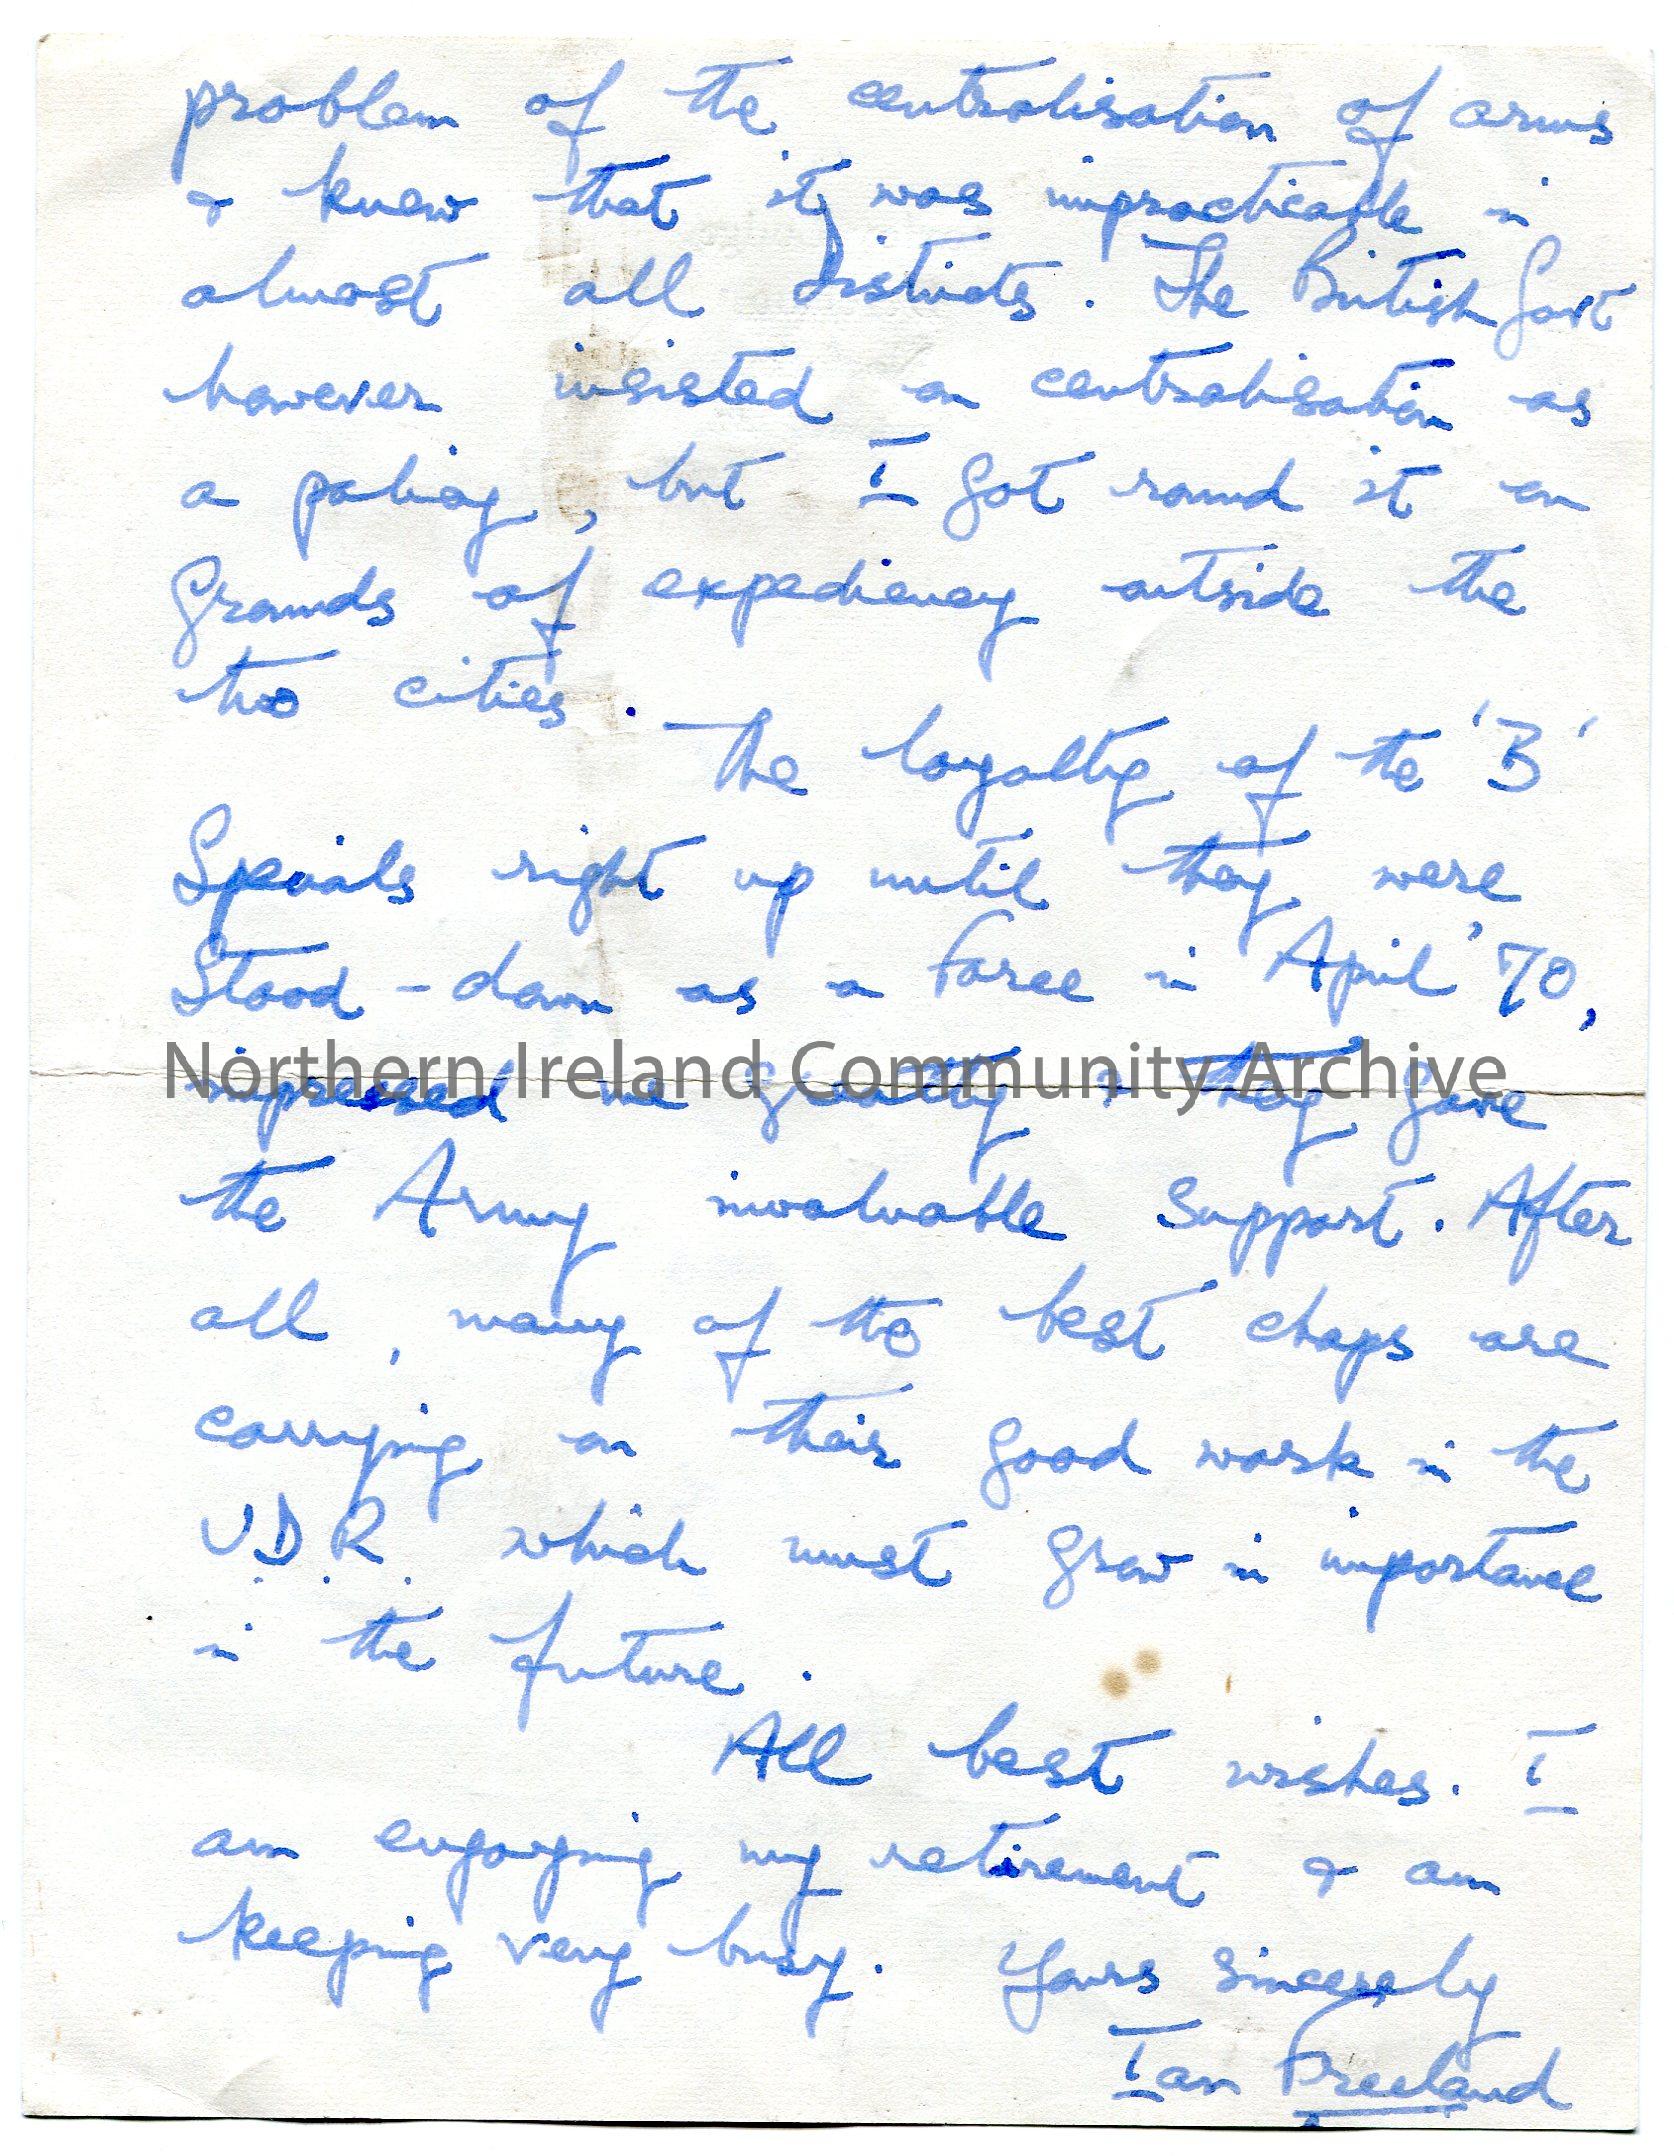 problem of the centralisation of arms
& knew that it was impracticable in
almost all Districts. The British Govt
however insisted on centralisation as
a policy, but I got round it on
grounds of expediency outside the
two cities.
The loyalty of the 'B'
Specials right up until they were
Stood-down as a Force in April '70,
Northern Ireland Community Archive
impressed me greatly & they gave
the Army invaluable support. After
all, many of the best chaps are
carrying on their good work in the
U.D.R. which must grow in importance
in the future.
All best wishes. I
am enjoying my retirement & am
keeping very busy. Yours sincerely
Ian Freeland